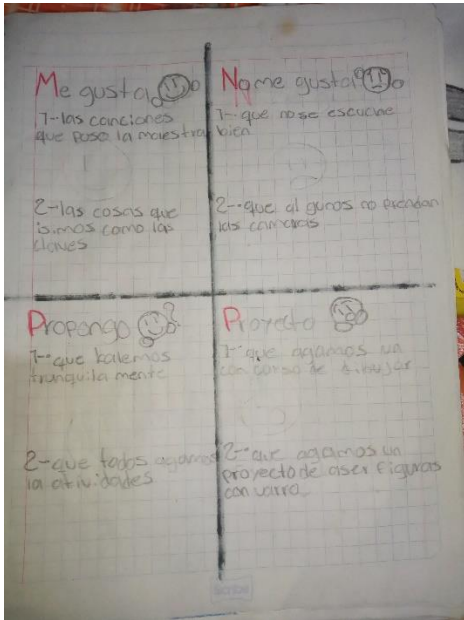 Me gusta
1-las canciones
que puso la maestra
2-las cosas que
isimos como las
claves
No me gusta
1-que no se escuche
bien
2-que algunos no prendan
las camaras
Propongo
1-que halemos
tranquila mente
2-que todos agamos
la atividades
Proyecto
1-que agamos un
con curso de dibujar
2-que agamos un
proyecto de aser figuras
con varro
Scribe